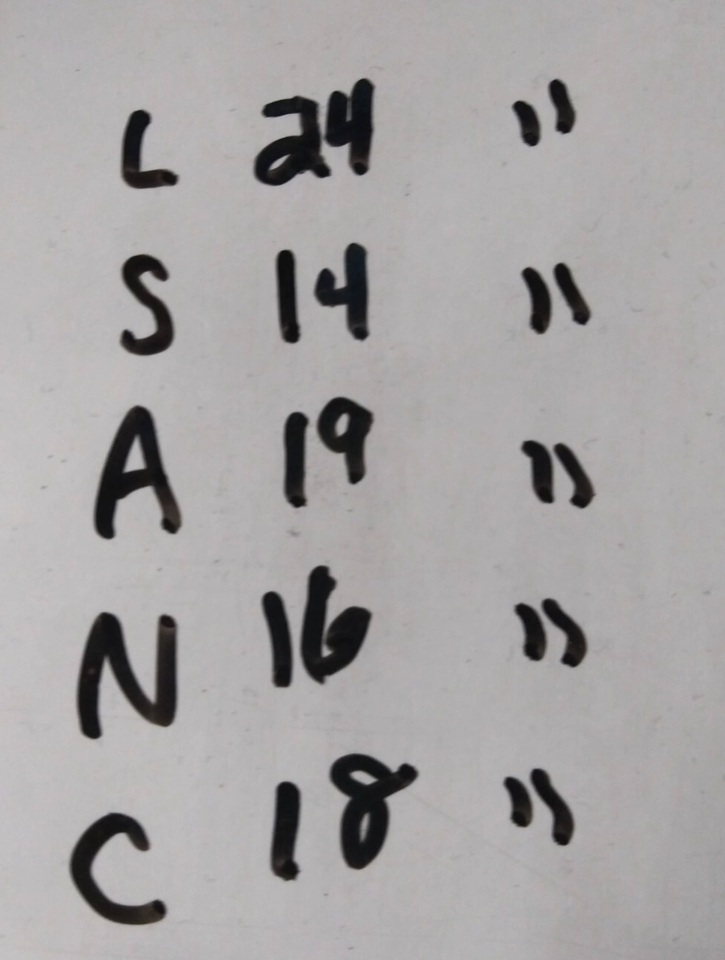 L 24 "
S 14 "
A 19 "
N 16 "
C 18 "